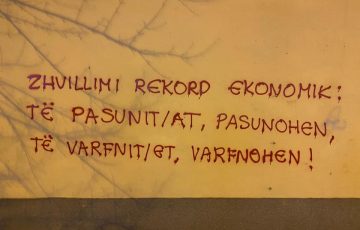 ZHVILLIMI REKORD EKONOMIK:
TË PASUNIT/AT, PASUNOHEN,
TË VARFNIT/ET, VARFNOHEN!